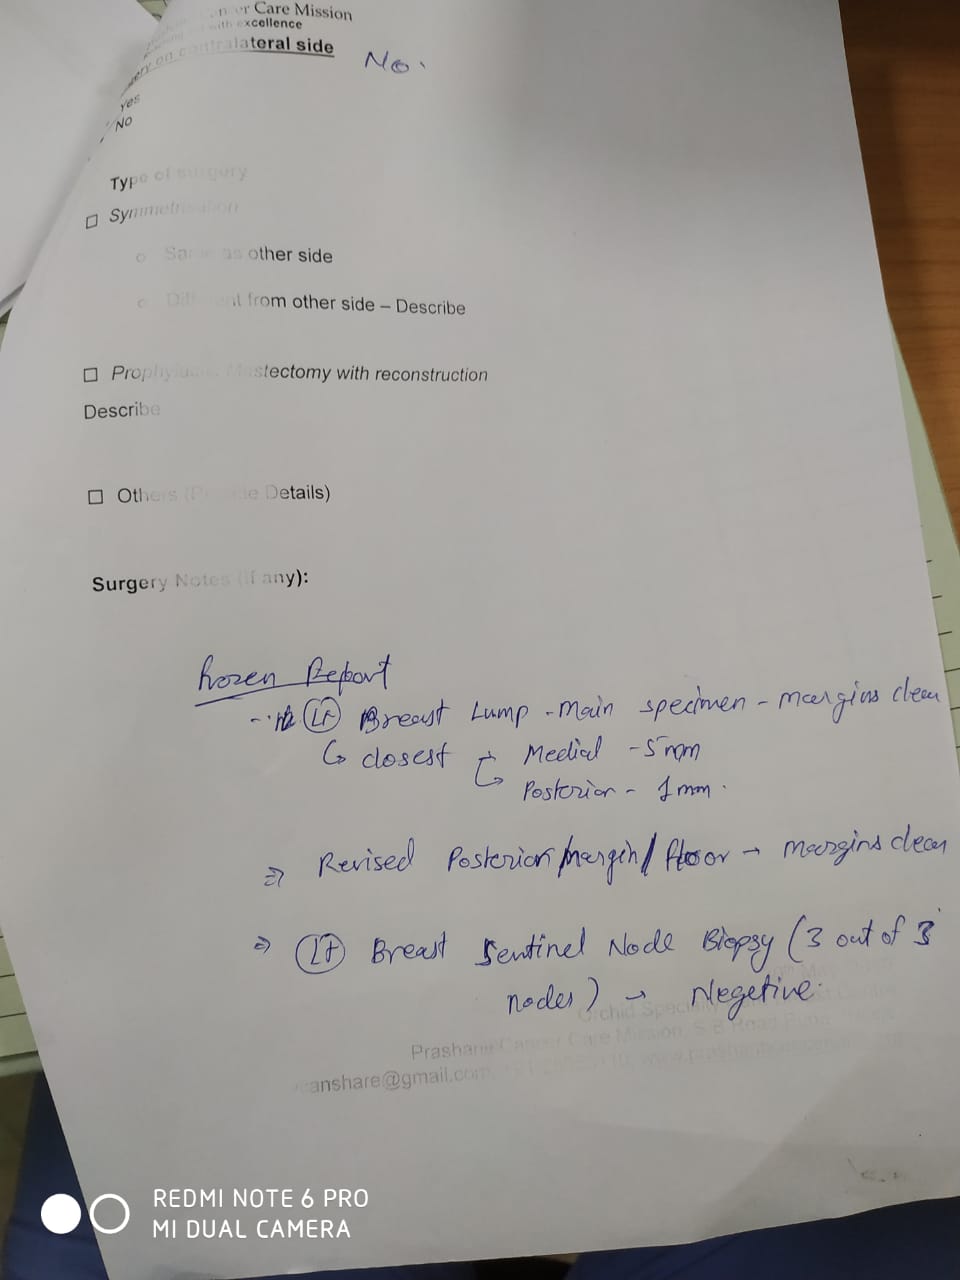 Care Mission
with excellence
contralateral side
No.
Yes
No
Type of surgery
☐ Symmetrisation
o Same as other side
o Different from other side – Describe
☐ Prophylactic Mastectomy with reconstruction
Describe
☐ Others (Provide Details)
Surgery Notes (if any):
Frozen Report
Lt Breast Lump - Main specimen - margins clean
closest Medial - 5mm
Posterior - 1mm.
⇒ Revised Posterior margin / floor → margins clean
⇒ Lt Breast Sentinel Node Biopsy (3 out of 3
nodes) → Negetive.
Orchid Speciality
Prashanti Cancer Care Mission, S B Road Pune
canshare@gmail.com
REDMI NOTE 6 PRO
MI DUAL CAMERA